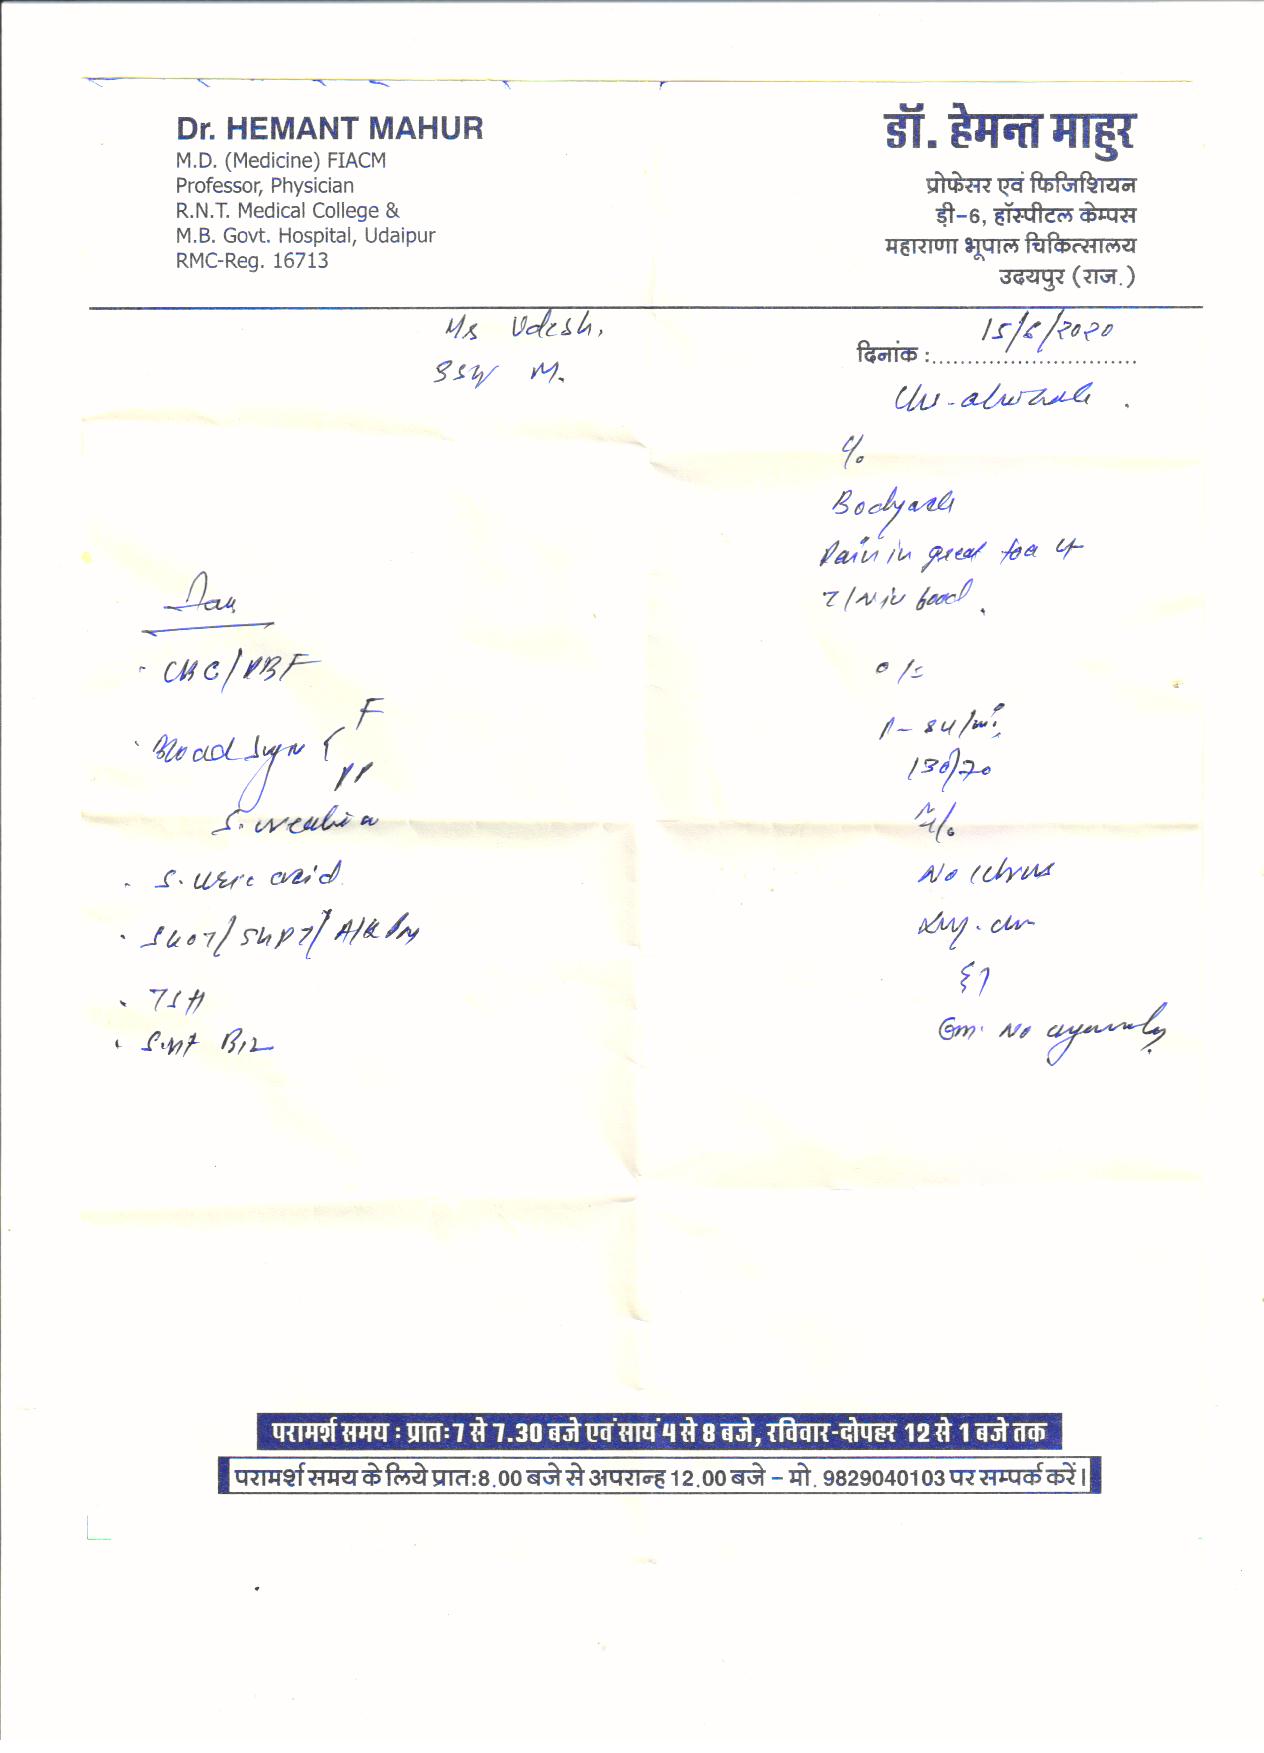 Dr. HEMANT MAHUR
M.D. (Medicine) FIACM
Professor, Physician
R.N.T. Medical College &
M.B. Govt. Hospital, Udaipur
RMC-Reg. 16713
डॉ. हेमन्त माहुर
प्रोफेसर एवं फिजिशियन
डी-6, हॉस्पीटल केम्पस
महाराणा भूपाल चिकित्सालय
उदयपुर (राज.)
Udesh,
M.
दिनांक : 15/6/2020
C/o
Bodyache
Pain in great toe
T/N in
O/E
P- 84/min
130/70
No icterus
No
CBC/PBF
Blood Sugar { F
PP
S. creatinine
S. uric acid
SGOT/SGPT/
TSH
B12
परामर्श समय : प्रातः7 से 7.30 बजे एवं सायं 4 से 8 बजे, रविवार-दोपहर 12 से 1 बजे तक
परामर्श समय के लिये प्रात:8.00 बजे से अपरान्ह 12.00 बजे – मो. 9829040103 पर सम्पर्क करें।